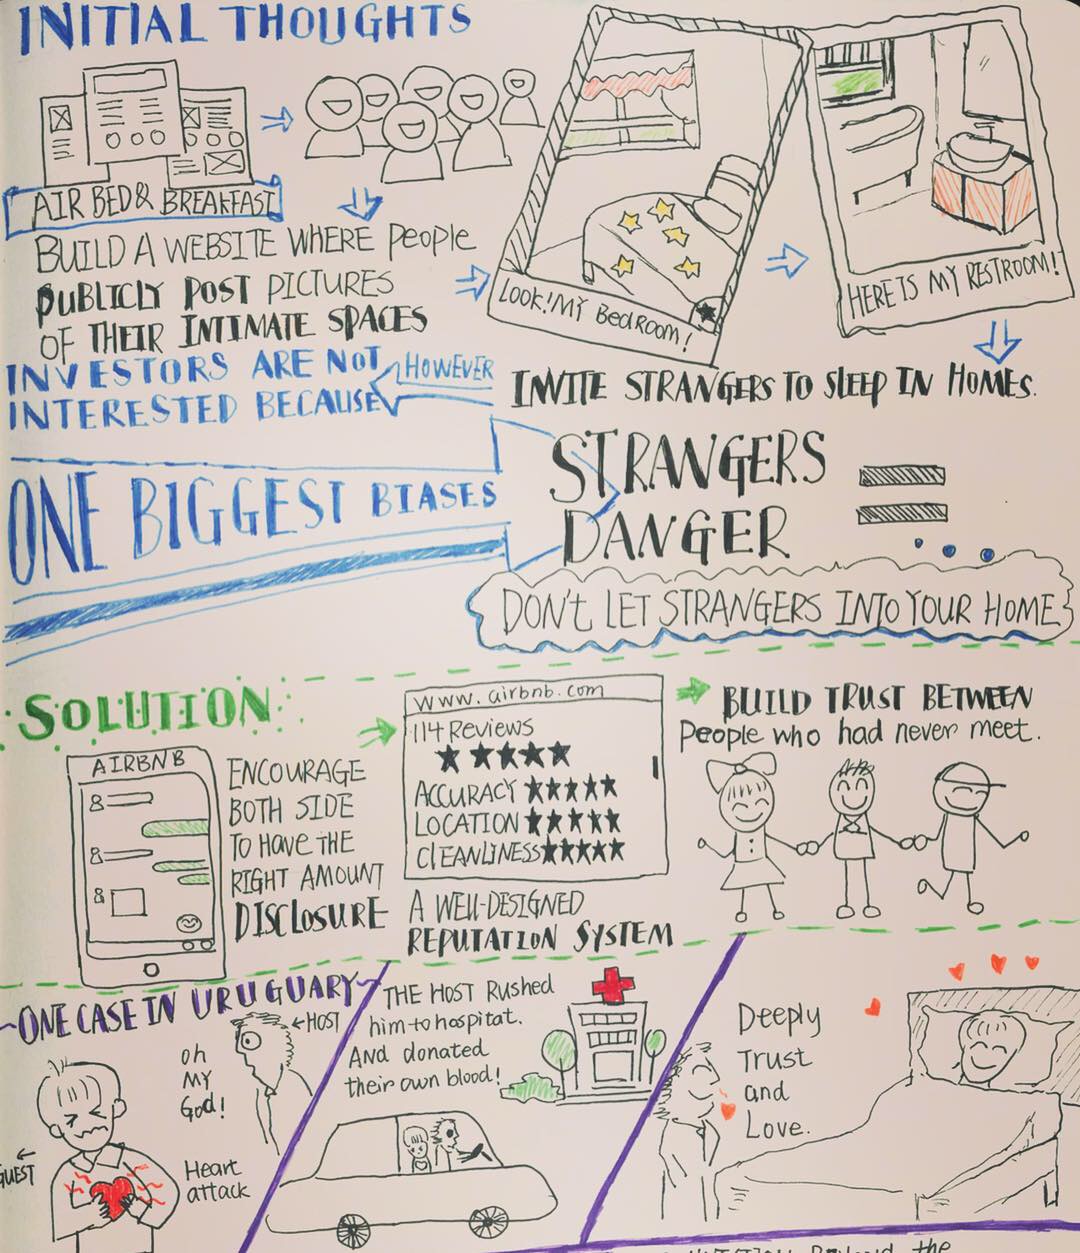 INITIAL THOUGHTS
AIR BED & BREAKFAST
BUILD A WEBSITE WHERE People
PUBLICLY POST PICTURES
OF THEIR INTIMATE SPACES
LOOK! MY BedRoom!
HERE IS MY RESTROOM!
INVITE STRANGERS TO SLEEP IN HOMES.
HOWEVER
INVESTORS ARE NOT
INTERESTED BECAUSE
ONE BIGGEST BIASES
STRANGERS
DANGER
DON'T LET STRANGERS INTO YOUR HOME
SOLUTION
AIRBNB
ENCOURAGE
BOTH SIDE
TO HAVE THE
RIGHT AMOUNT
DISCLOSURE
www.airbnb.com
114 Reviews
ACCURACY
LOCATION
ClEANLINESS
A WELL-DESIGNED
REPUTATION SYSTEM
BUILD TRUST BETWEEN
People who had never meet.
ONE CASE IN URUGUARY
HOST
oh
MY
God!
GUEST
Heart
attack
THE HOST Rushed
him to hospitat.
AND donated
their own blood!
Deeply
Trust
and
Love.
the